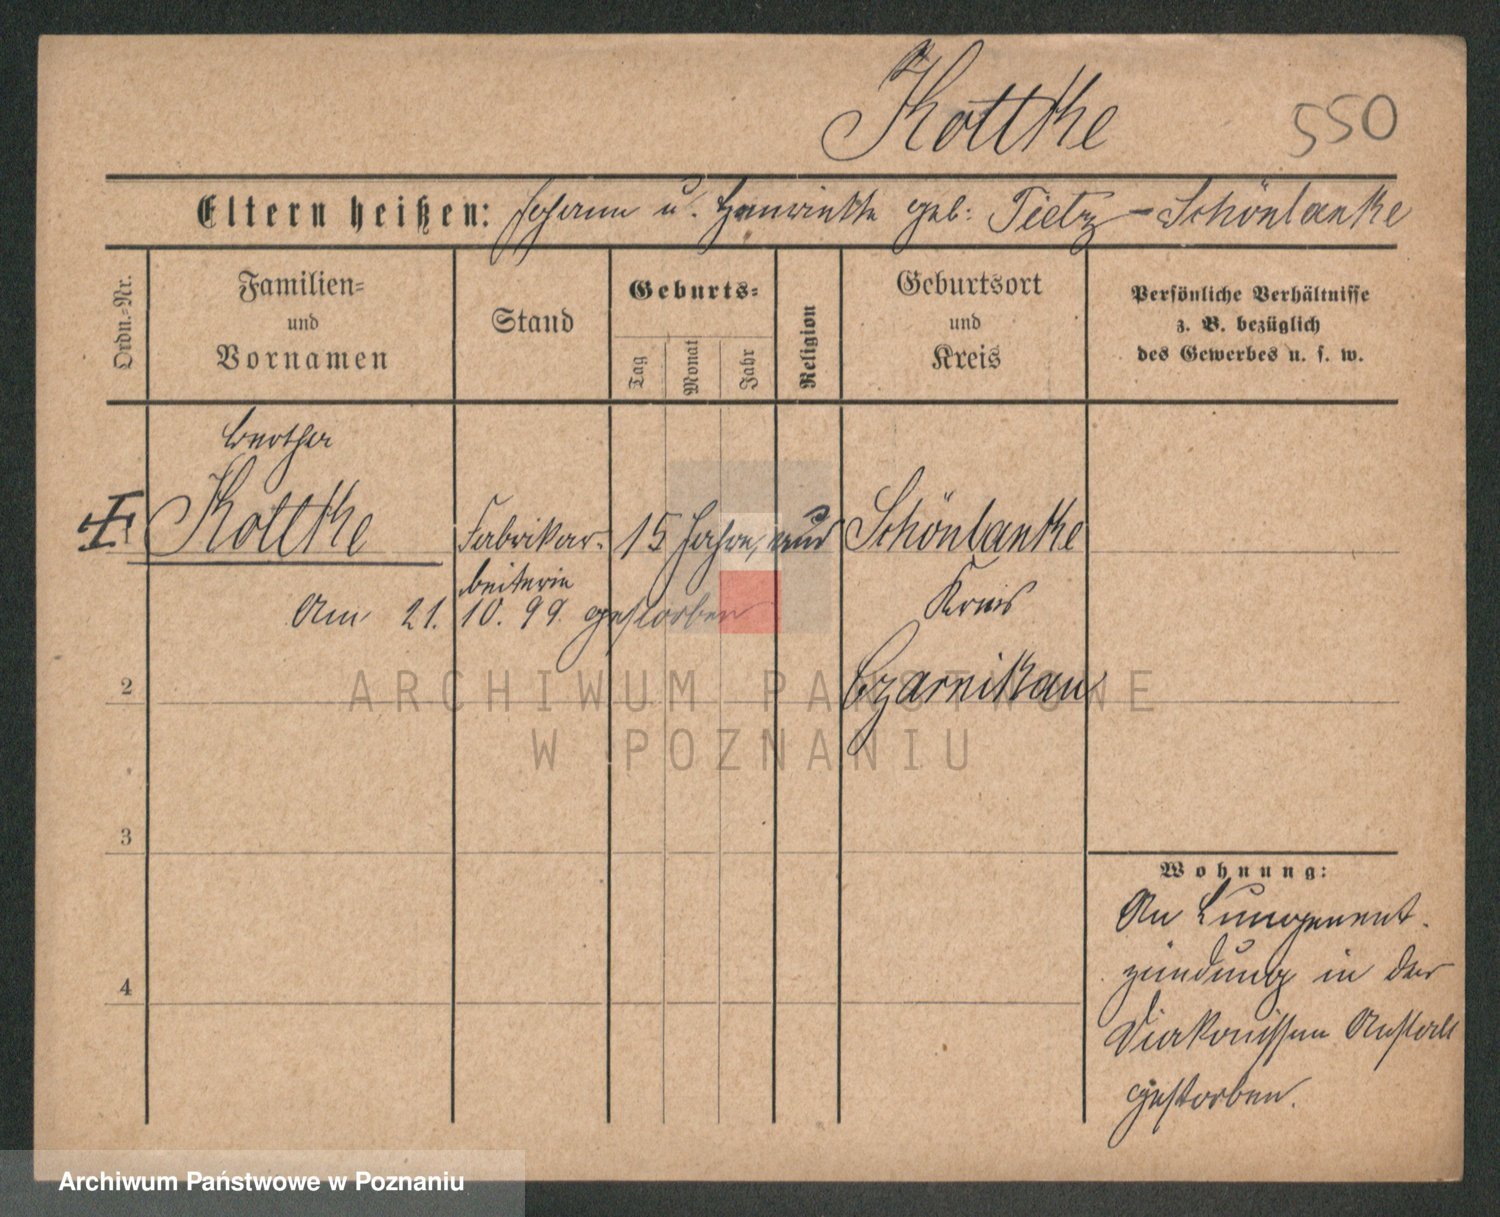 Kottke
550
Eltern heißen: Johann u. Henriette geb: Tietz - Schönlanke
Ordn.-Nr.
Familien-
und
Vornamen
Stand
Geburts-
Tag
Monat
Jahr
Religion
Geburtsort
und
Kreis
Persönliche Verhältnisse
z. B. bezüglich
des Gewerbes u. s. w.
Bertha
Kottke
Fabrikar-
beiterin
15 Jahre,
Schönlanke
Kreis
Czarnikau
Am 21. 10. 99. gestorben
2
3
4
Wohnung:
An Lungenent-
zündung in der
Diakonissen Anstalt
gestorben.
ARCHIWUM PAŃSTWOWE
W POZNANIU
Archiwum Państwowe w Poznaniu